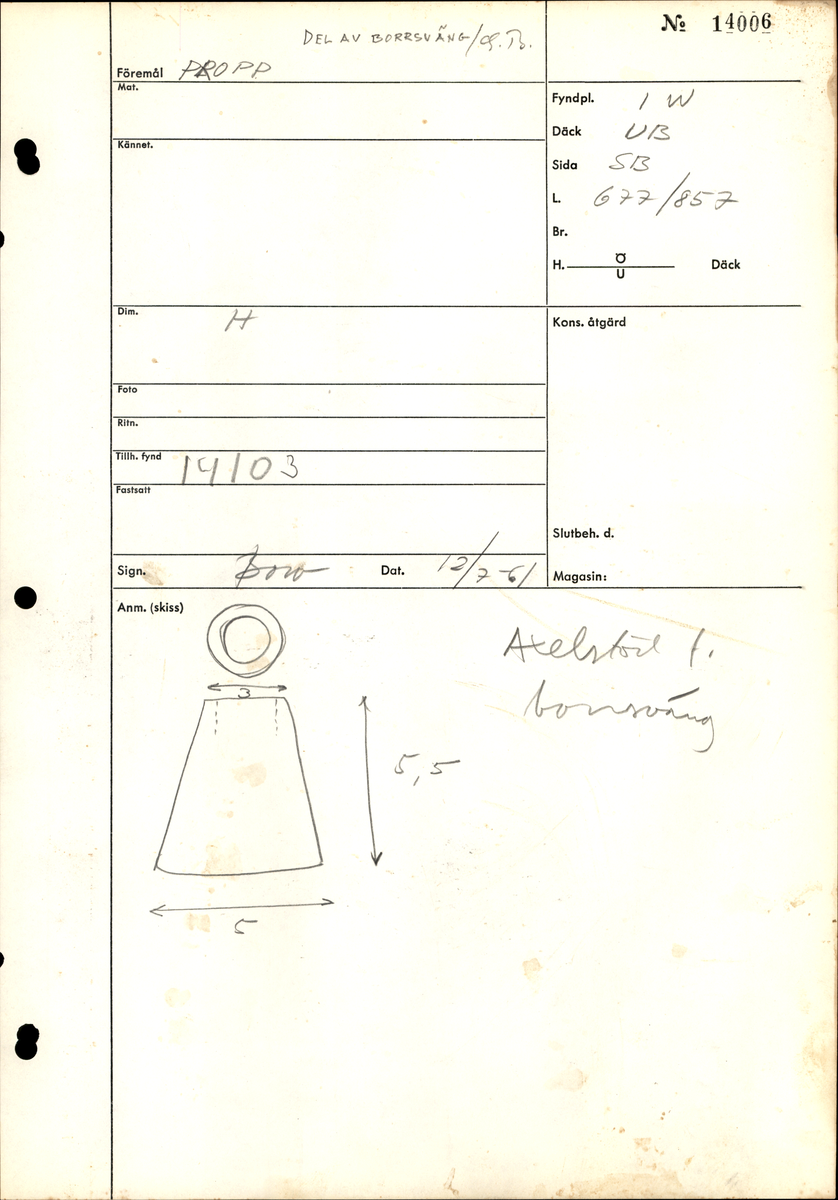 DEL AV BORRSVÄNG/G.B.
Föremål PROPP
Mat.
Kännet.
Dim. H
Foto
Ritn.
Tillh. fynd 14103
Fastsatt
Sign. Bow Dat. 12/7-61
№ 14006
Fyndpl. I W
Däck UB
Sida SB
L. 677/857
Br.
H. Ö
U Däck
Kons. åtgärd
Slutbeh. d.
Magasin:
Anm. (skiss)
3
5,5
5
Axelstöd f.
borrsväng